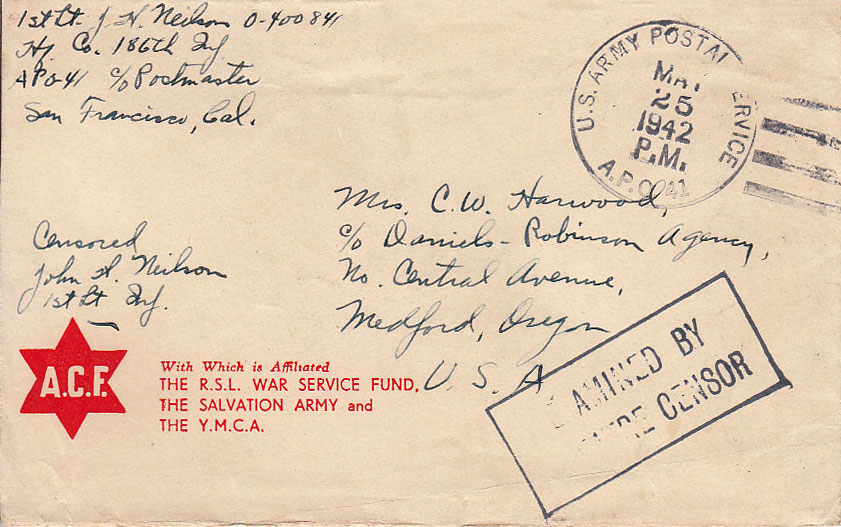 1st Lt. J. H. Neilson O-400841
Hq. Co. 186th Inf
APO-41 c/o Postmaster
San Francisco, Cal.
U.S. ARMY POSTAL SERVICE
MAY
25
1942
P.M.
A.P.O. 41
Mrs. C.W. Harwood,
c/o Daniels-Robinson Agency,
No. Central Avenue,
Medford, Oregon
U. S. A
Censored
John H. Neilson
1st Lt Inf.
A.C.F.
With Which is Affiliated
THE R.S.L. WAR SERVICE FUND,
THE SALVATION ARMY and
THE Y.M.C.A.
AMINED BY
CENSOR